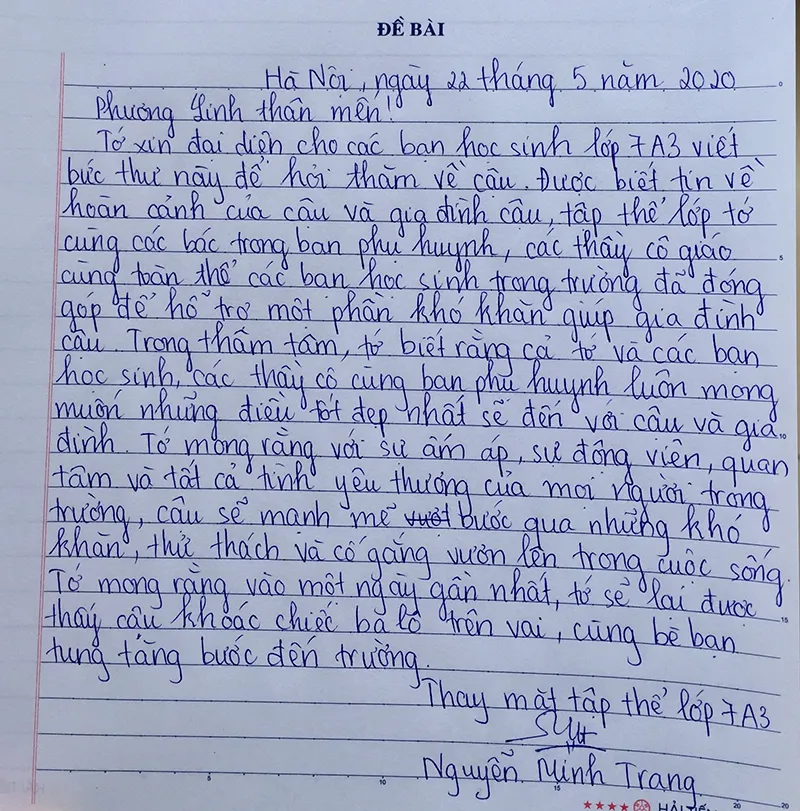 ĐỀ BÀI
Hà Nội, ngày 22 tháng 5 năm 2020
Phương Linh thân mến!
Tớ xin đại diện cho các bạn học sinh lớp 7A3 viết
bức thư này để hỏi thăm về cậu. Được biết tin về
hoàn cảnh của cậu và gia đình cậu, tập thể lớp tớ
cùng các bác trong ban phụ huynh, các thầy cô giáo
cùng toàn thể các bạn học sinh trong trường đã đóng
góp để hỗ trợ một phần khó khăn giúp gia đình
cậu. Trong thâm tâm, tớ biết rằng cả tớ và các bạn
học sinh, các thầy cô cùng ban phụ huynh luôn mong
muốn những điều tốt đẹp nhất sẽ đến với cậu và gia
đình. Tớ mong rằng với sự ấm áp, sự động viên, quan
tâm và tất cả tình yêu thương của mọi người trong
trường, cậu sẽ mạnh mẽ vượt bước qua những khó
khăn, thử thách và cố gắng vươn lên trong cuộc sống.
Tớ mong rằng vào một ngày gần nhất, tớ sẽ lại được
thấy cậu khoác chiếc ba lô trên vai, cùng bè bạn
tung tăng bước đến trường.
Thay mặt tập thể lớp 7A3
Nguyễn Minh Trang
5
10
15
5
10
15
20
20